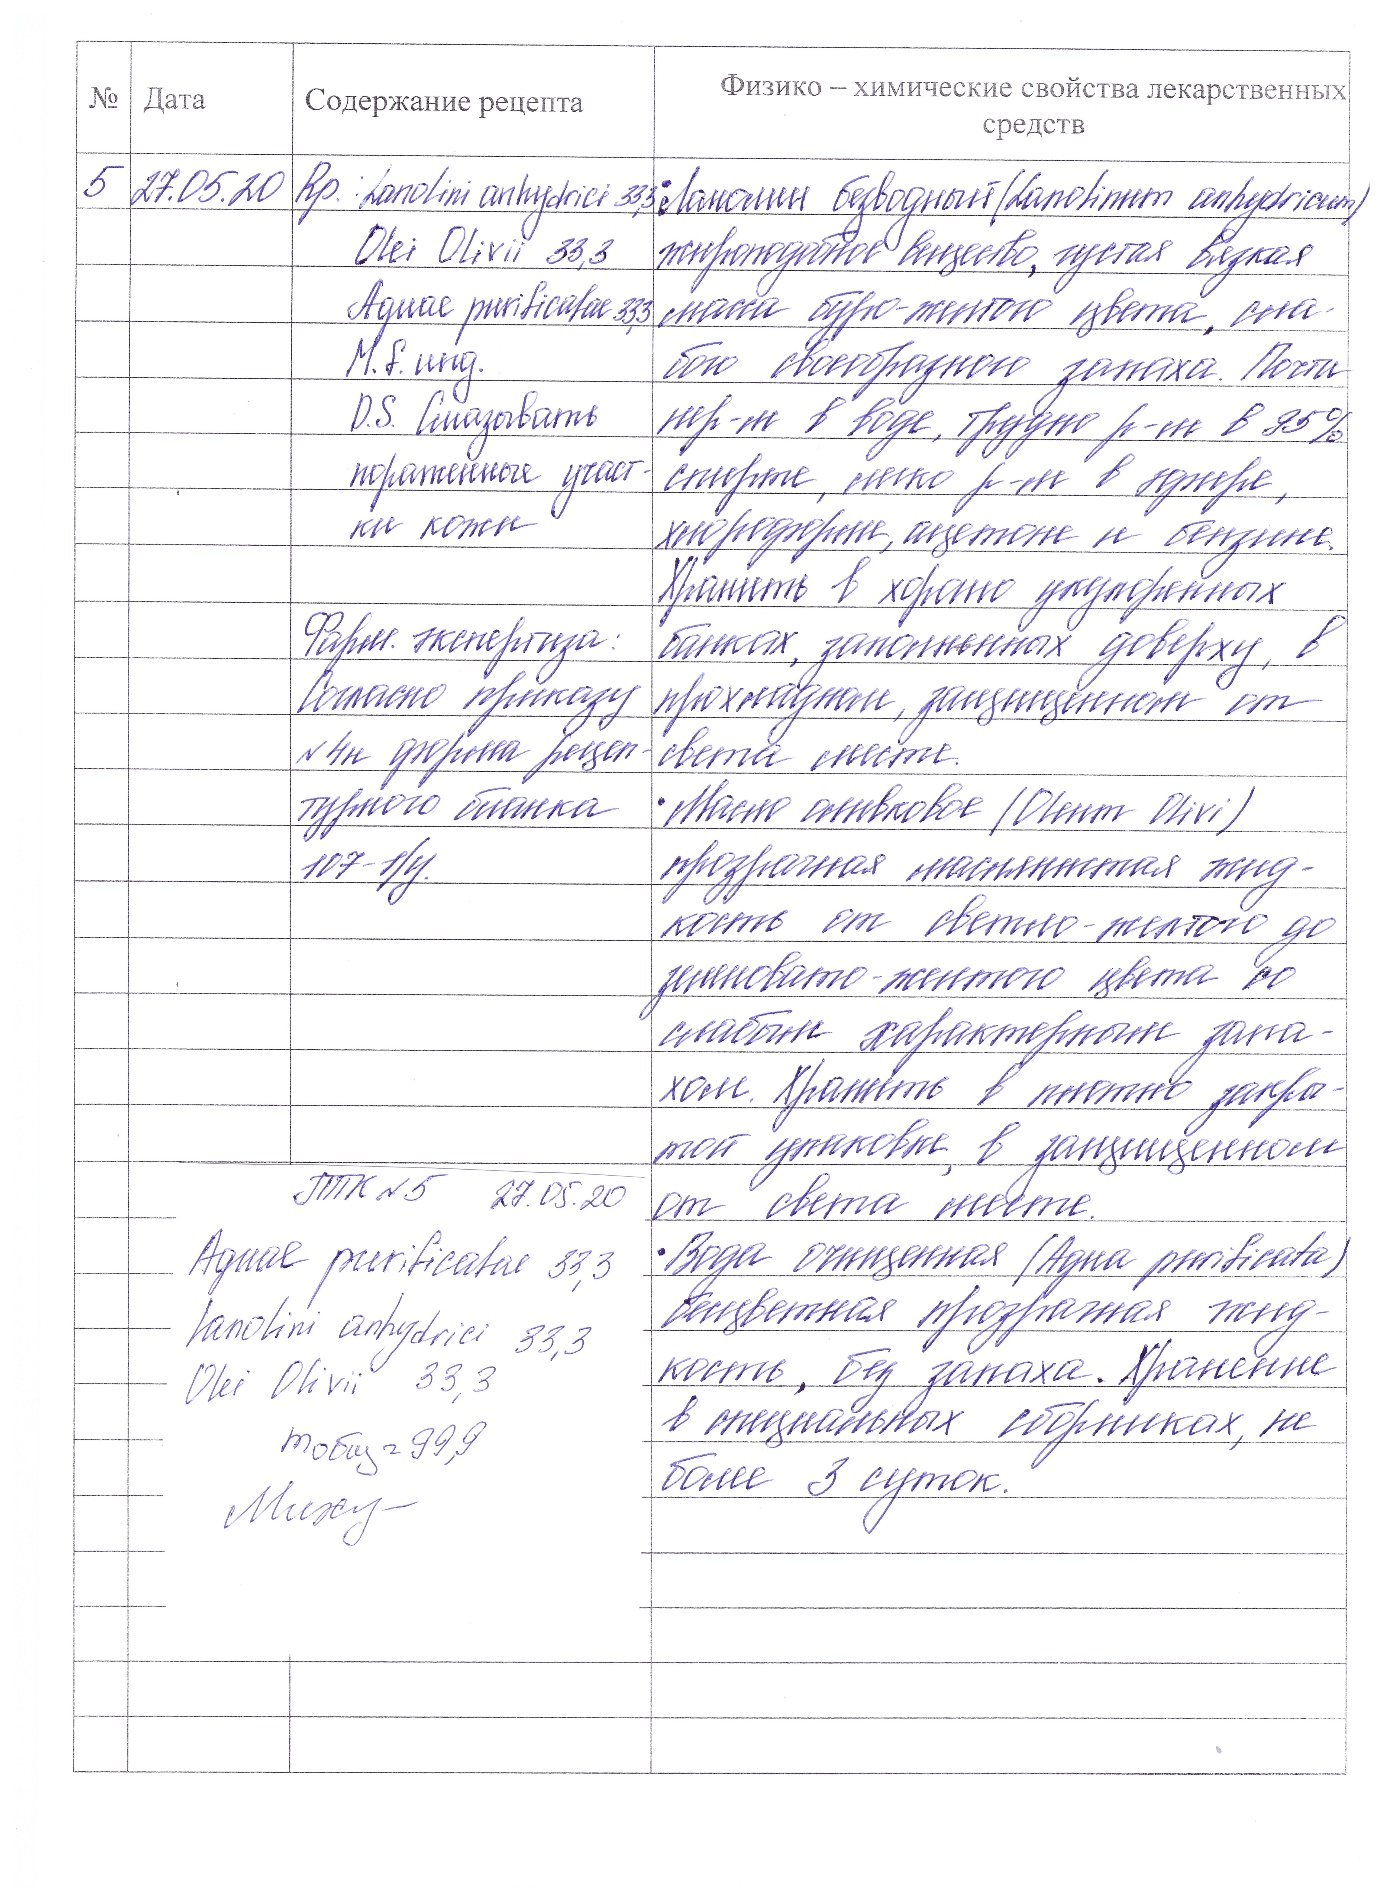 №
Дата
Содержание рецепта
Физико – химические свойства лекарственных
средств
5
27.05.20
Rp.: Lanolini anhydrici 33,3
Olei Olivii 33,3
Aquae purificatae 33,3
M.f. ung.
D.S. Смазывать
пораженные участ-
ки кожи
Фарм. экспертиза:
Согласно приказу
№4н форма рецеп-
турного бланка
107-1/у.
ППК №5 27.05.20
Aquae purificatae 33,3
Lanolini anhydrici 33,3
Olei Olivii 33,3
mобщ=99,9
• Ланолин безводный (Lanolinum anhydricum)
жироподобное вещество, густая вязкая
масса буро-желтого цвета, сла-
бого своеобразного запаха. Почти
нер-м в воде, трудно р-м в 95%
спирте, легко р-м в эфире,
хлороформе, ацетоне и бензине.
Хранить в хорошо укупоренных
банках, заполненных доверху, в
прохладном, защищенном от
света месте.
• Масло оливковое (Oleum Olivi)
прозрачная маслянистая жид-
кость от светло-желтого до
зеленовато-желтого цвета со
слабым характерным запа-
хом. Хранить в плотно закры-
той упаковке, в защищенном
от света месте.
• Вода очищенная (Aqua purificata)
бесцветная прозрачная жид-
кость, без запаха. Хранение
в специальных сборниках, не
более 3 суток.